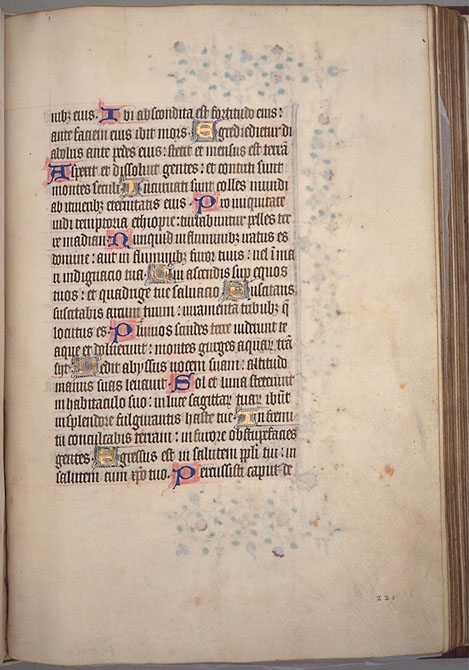 nibz eius. Ibi abscondita est fortitudo eius:
ante faciem eius ibit mors. Egredietur di
abolus ante pedes eius: stetit et mensus est terrā
Aspexit et dissolvit gentes: et contriti sunt
montes seculi Incurvati sunt colles mundi
ab itineribz eternitatis eius. Pro iniquitate
vidi tentoria ethiopie: turbabuntur pelles ter
re madian. Nunquid in fluminibz iratus es
domine: aut in fluminibz furor tuus: vel ī mā
ri indignacio tua. Qui ascendis sup equos
tuos: et quadrige tue salvacio Suscitans
suscitabis arcum tuum: iuramenta tribubz q̄
locutus es. Fluvios scindes terre viderunt te
aque et doluerunt: montes gurges aquarum trā
syt. Dedit abyssus vocem suam: altitudo
manus suas levavit. Sol et luna steterunt
in habitaculo suo: in luce sagittarum tuarum ibūt
in splendore fulgurantis haste tue. In fremi
tu conculcabis terram: in furore obstupefacies
gentes. Egressus est in salutem ppli tui: in
salutem cum xpo tuo. Percussisti caput de
221